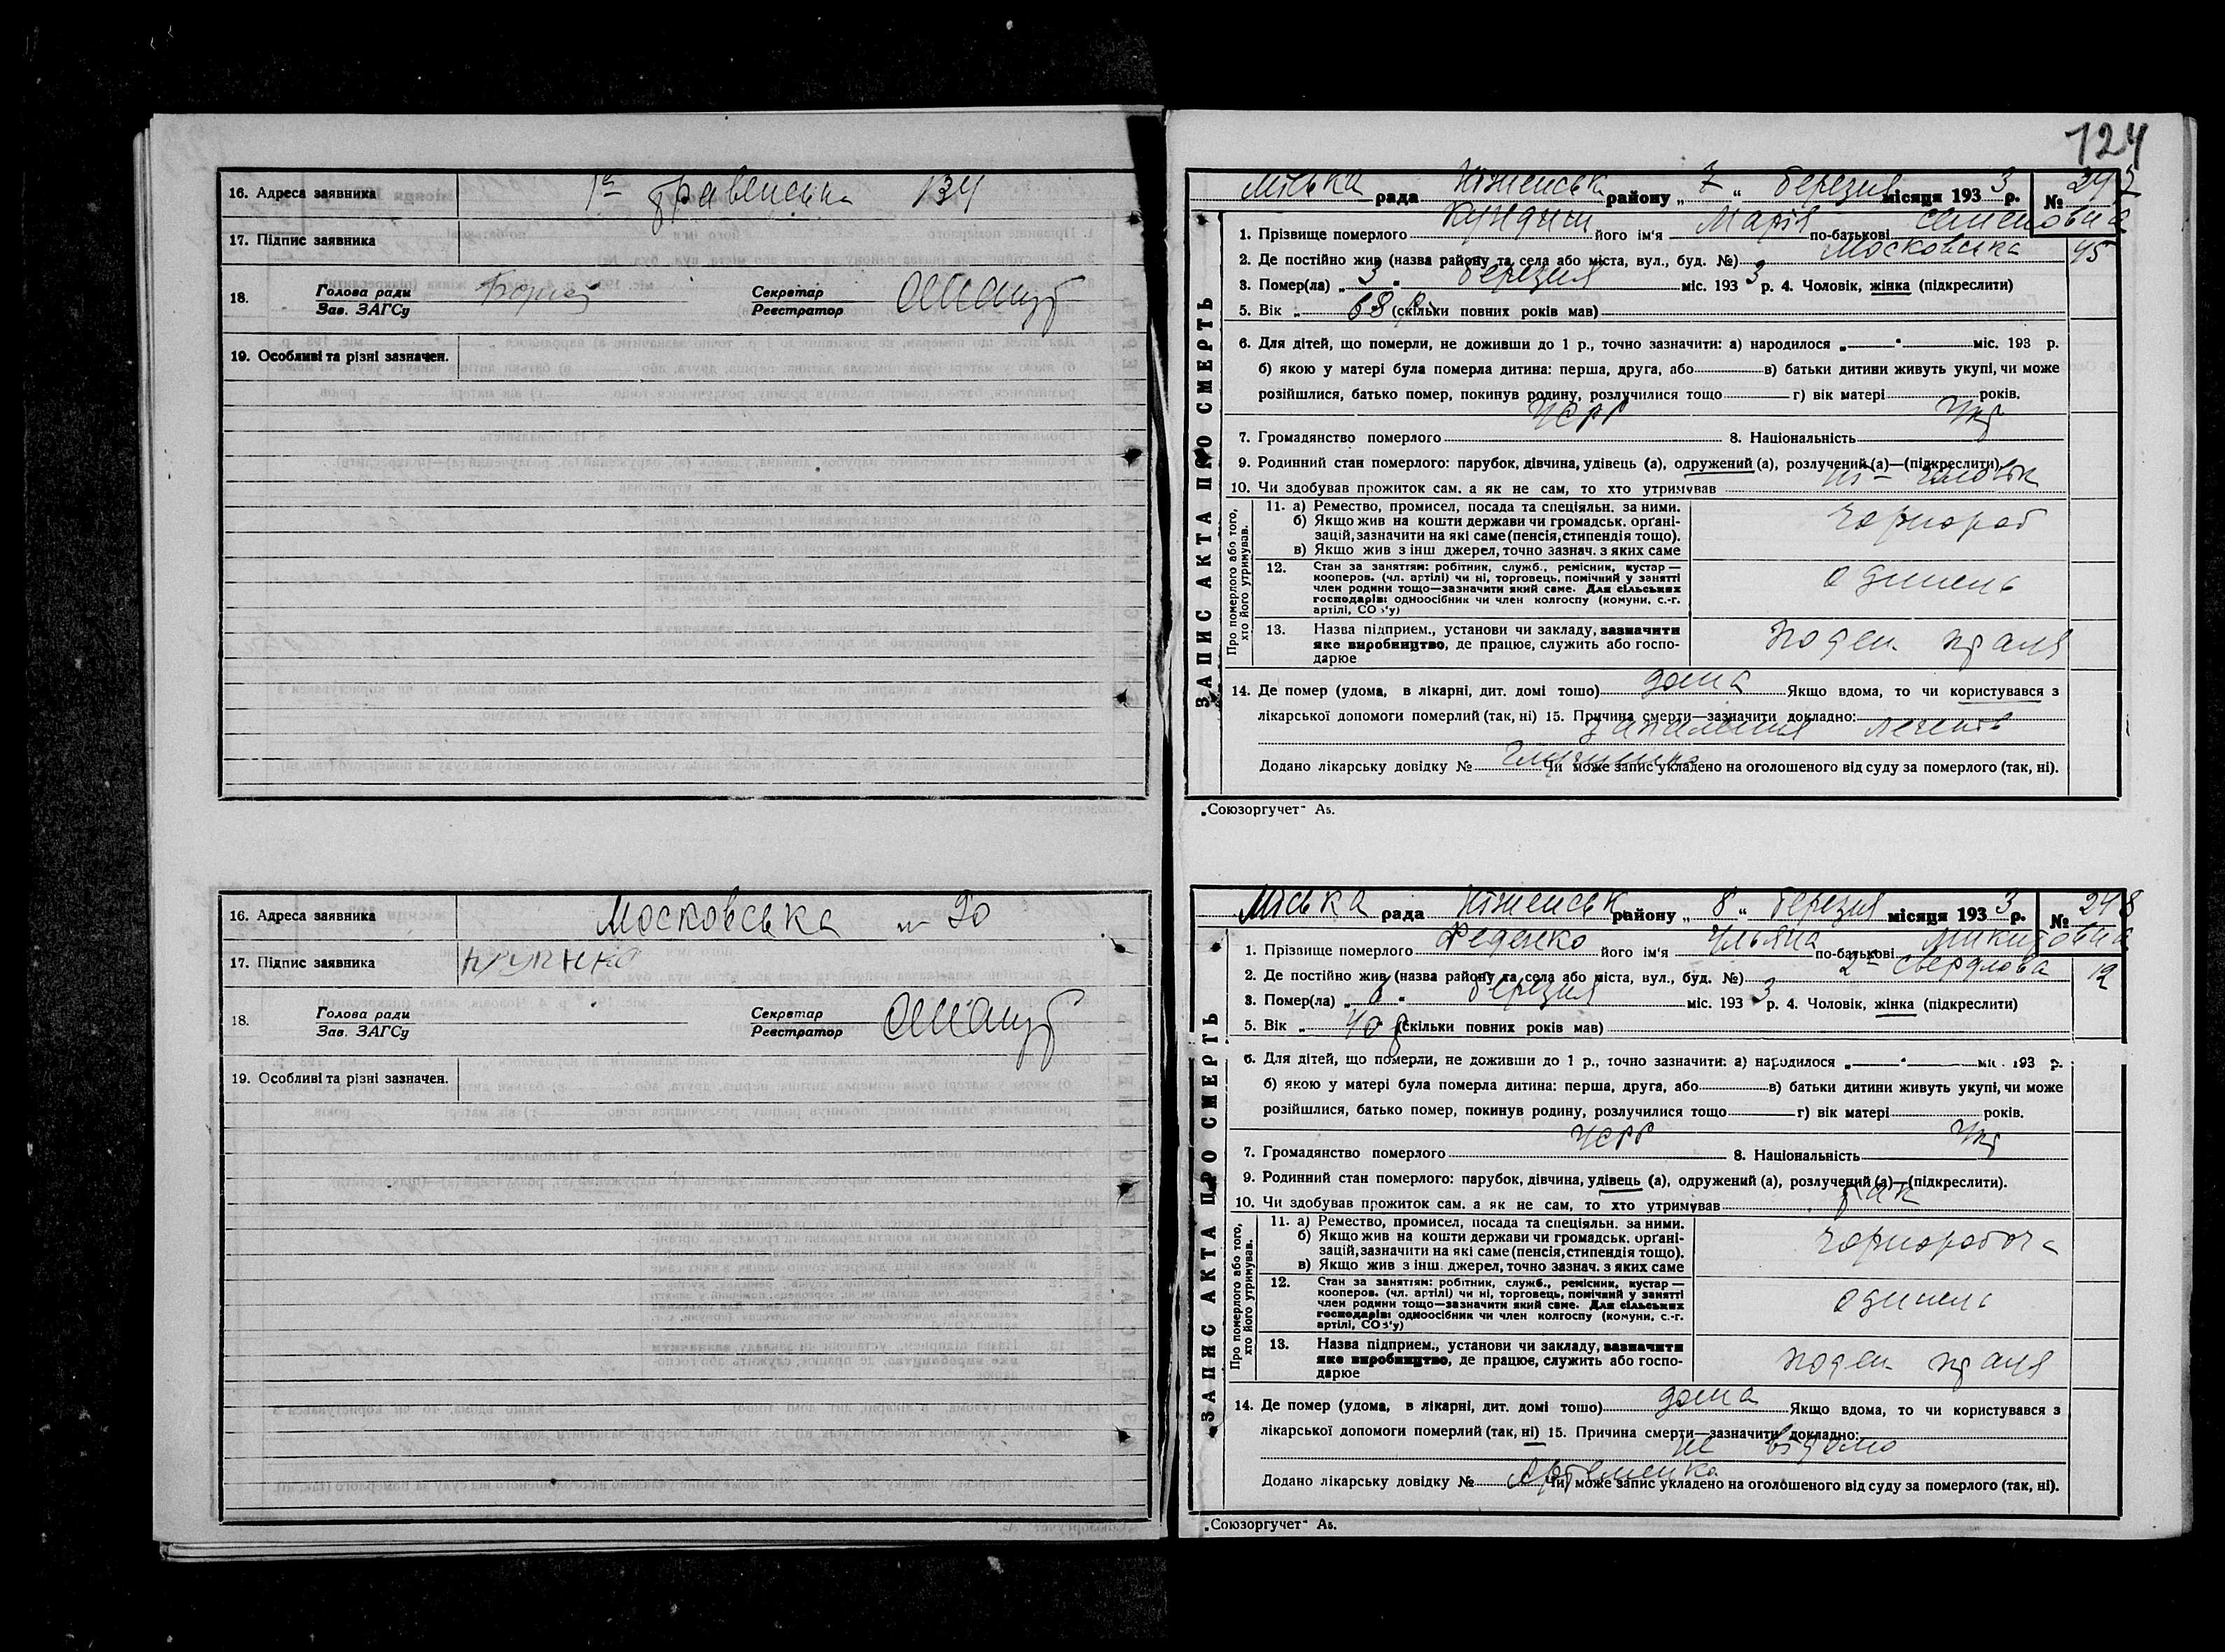 16. Адреса заявника 134
17. Підпис заявника
18. Голова ради Зав. ЗАГСу Секретар Реєстратор
19. Особливі та різні зазначен.
16. Адреса заявника Московська № 20
17. Підпис заявника
18. Голова ради Зав. ЗАГСу Секретар Реєстратор
19. Особливі та різні зазначен.
124
ЗАПИС АКТА ПРО СМЕРТЬ
Міська рада Ніженськ району „ 7 “ березня місяця 193 3 р. № 247
1. Прізвище померлого його ім'я Марія по-батькові Семеновна
2. Де постійно жив (назва району та села або міста, вул., буд. №) Московська 45
3. Помер(ла) „ 3 “ березня міс. 193 3 р. 4. Чоловік, жінка (підкреслити)
5. Вік „ 68 р (скільки повних років мав)
6. Для дітей, що померли, не доживши до 1 р., точно зазначити: а) народилося „ “ міс. 193 р.
б) якою у матері була померла дитина: перша, друга, або в) батьки дитини живуть укупі, чи може
розійшлися, батько помер, покинув родину, розлучилися тощо г) вік матері років.
7. Громадянство померлого УСРР 8. Національність Укр
9. Родинний стан померлого: парубок, дівчина, удівець (а), одружений (а), розлучений (а)—(підкреслити).
10. Чи здобував прожиток сам. а як не сам, то хто утримував ні – чоловік
Про померлого або того, хто його утримував.
11. а) Ремество, промисел, посада та спеціяльн. за ними.
б) Якщо жив на кошти держави чи громадськ. орґані-
зацій, зазначити на які саме (пенсія, стипендія тощо).
в) Якщо жив з інш джерел, точно зазнач. з яких саме
чорнороб
12. Стан за заняттям: робітник, служб., ремісник, кустар —
кооперов. (чл. артілі) чи ні, торговець, помічний у занятті
член родини тощо—зазначити який саме. Для сільських
господарів: одноосібник чи член колгоспу (комуни, с.-г.
артілі, СОЗ'у)
одинець
13. Назва підприєм., установи чи закладу, зазначити
яке виробництво, де працює, служить або госпо-
дарює
поден. праця
14. Де помер (удома, в лікарні, дит. домі тощо) дома Якщо вдома, то чи користувався з
лікарської допомоги померлий (так, ні) 15. Причина смерти—зазначити докладно:
запалення легенів
Додано лікарську довідку № Чи може запис укладено на оголошеного від суду за померлого (так, ні).
„Союзоргучет“ А5.
ЗАПИС АКТА ПРО СМЕРТЬ
Міська рада Ніженськ району „ 8 “ березня місяця 193 3 р. № 248
1. Прізвище померлого Феденко його ім'я Ульяна по-батькові Микитовна
2. Де постійно жив (назва району та села або міста, вул., буд. №) 2 – Свердлова 12
3. Помер(ла) „ “ березня міс. 193 3 р. 4. Чоловік, жінка (підкреслити)
5. Вік „ 40 р (скільки повних років мав)
6. Для дітей, що померли, не доживши до 1 р., точно зазначити: а) народилося „ “ міс. 193 р.
б) якою у матері була померла дитина: перша, друга, або в) батьки дитини живуть укупі, чи може
розійшлися, батько помер, покинув родину, розлучилися тощо г) вік матері років.
7. Громадянство померлого УСРР 8. Національність Укр
9. Родинний стан померлого: парубок, дівчина, удівець (а), одружений (а), розлучений (а)—(підкреслити).
10. Чи здобував прожиток сам. а як не сам, то хто утримував так
Про померлого або того, хто його утримував.
11. а) Ремество, промисел, посада та спеціяльн. за ними.
б) Якщо жив на кошти держави чи громадськ. орґані-
зацій, зазначити на які саме (пенсія, стипендія тощо).
в) Якщо жив з інш джерел, точно зазнач. з яких саме
чорноробоча
12. Стан за заняттям: робітник, служб., ремісник, кустар —
кооперов. (чл. артілі) чи ні, торговець, помічний у занятті
член родини тощо—зазначити який саме. Для сільських
господарів: одноосібник чи член колгоспу (комуни, с.-г.
артілі, СОЗ'у)
одинець
13. Назва підприєм., установи чи закладу, зазначити
яке виробництво, де працює, служить або госпо-
дарює
поден. праця
14. Де помер (удома, в лікарні, дит. домі тощо) дома Якщо вдома, то чи користувався з
лікарської допомоги померлий (так, ні) 15. Причина смерти—зазначити докладно:
не відомо
Додано лікарську довідку № Артеменка Чи може запис укладено на оголошеного від суду за померлого (так, ні).
„Союзоргучет“ А5.